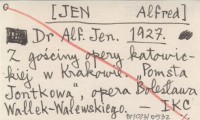 [JEN Alfred]
Dr Alf. Jen. 1927.
Z gościny opery katowic-
kiej w Krakowie. "Pomsta
Jontkowa" opera Bolesława
Wallek-Walewskiego. — IKC